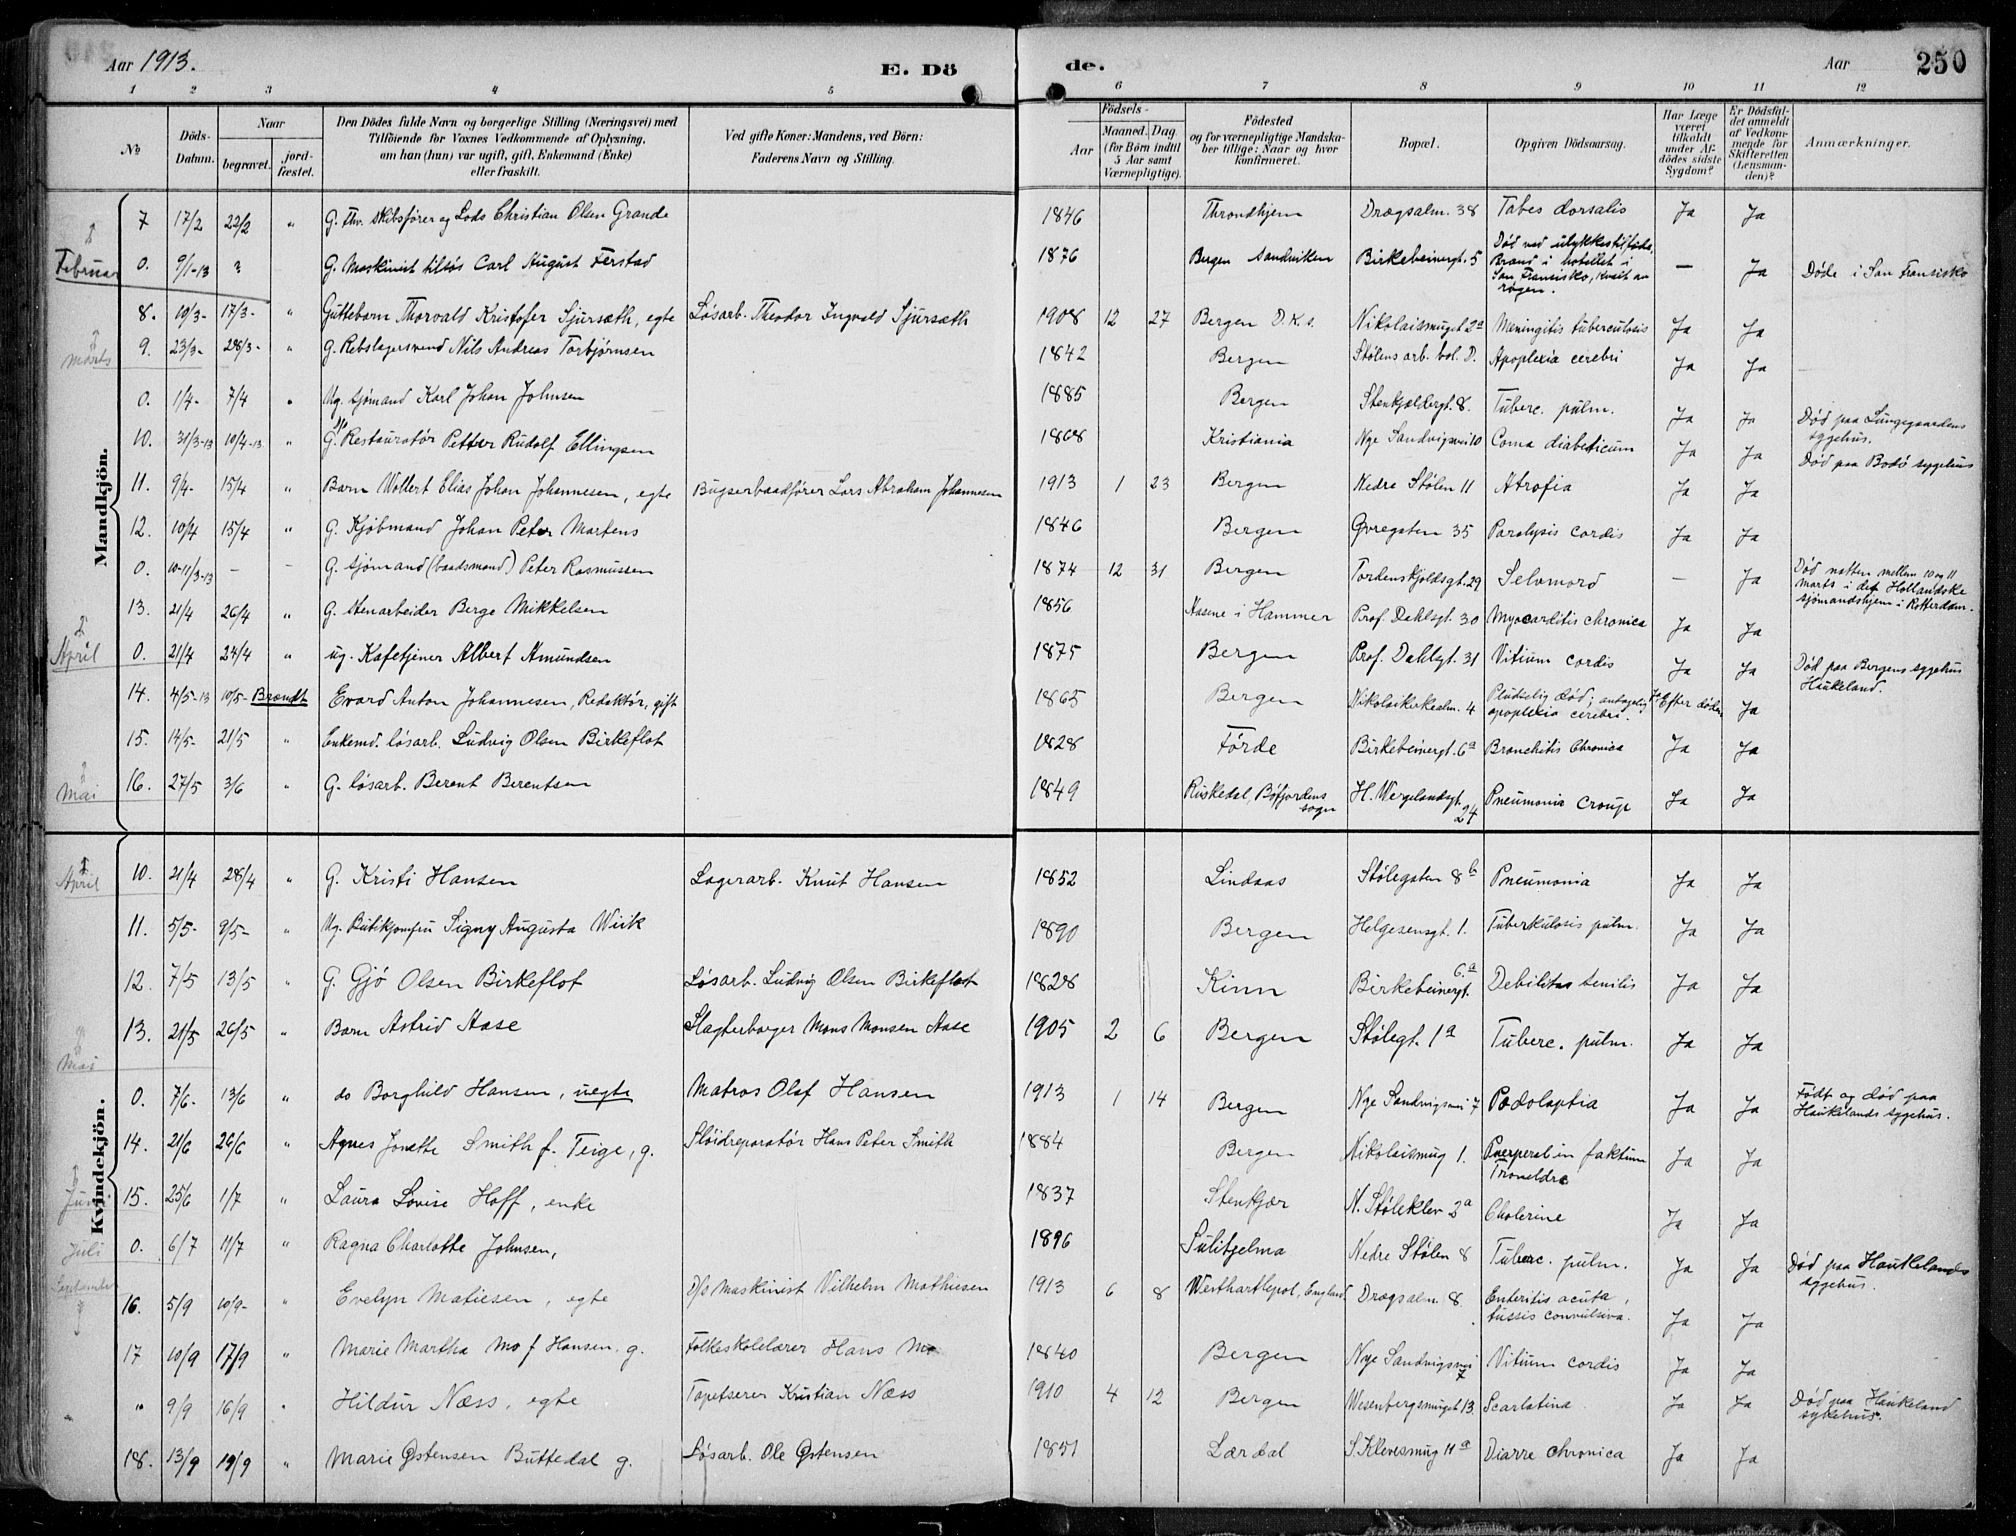 Aar 1913. E. Dö de. Aar 250
1 2 3 4 5 6 7 8 9 10 11 12
No
Döds-Datum.
Naar
begravet.
jord-fæstet.
Den Dödes fulde Navn og borgerlige Stilling (Næringsvei) med
Tilföiende for Voxnes Vedkommende af Oplysning,
om han (hun) var ugift, gift, Enkemand (Enke)
eller fraskilt.
Ved gifte Koner: Mandens, ved Börn:
Faderens Navn og Stilling.
Födsels-
Aar
Maaned. Dag.
(for Börn indtil
5 Aar samt
Værnepligtige).
Födested
og for værnepligtige Mandska-
ber tillige: Naar og hvor
konfirmeret.
Bopæl.
Opgiven Dödsaarsag.
Har Læge
været
tilkaldt
under Af-
dödes sidste
Sygdom?
Er Dödsfal-
det anmeldt
af Vedkom-
mende for
Skifteretten
(Lensman-
den)?
Anmærkninger.
Mandkjön.
Februar
7 17/2 22/2 " G. Fhv. skibsfører og Lods Christian Olsen Grande 1846 Throndhjem Drægsalm. 38 Tabes dorsalis Ja Ja
0. 9/1-13 ? G. Maskinist tilsøs Carl August Ferstad 1876 Bergen Sandviken Birkebeinergt. 5 Død ved ulykkestilfælde, Brand i hotellet i San Fransisko, kvalt av røgen. — Ja Døde i San Fransisko
8. 10/3- 17/3- " Guttebarn Thorvald Kristofer Sjursæth, egte Løsarb. Theodor Ingvald Sjursæth 1908 12 27 Bergen D.K.s. Nikolaismuget 2a Meningitis tuberculosis Ja Ja
Marts
9. 23/3- 28/3- " G. Rebslagersvend Nils Andreas Torbjørnsen 1842 Bergen Stølens arb. bol. D. Apoplexia cerebri Ja Ja
0. 1/4- 7/4 " Ug. sjømand Karl Johan Johnsen 1885 Bergen Stenkjeldergt. 8. Tuberc. pulm. Ja Ja Død paa Lungegaardens sygehus.
10. 31/3-13 10/4-13 " G. Restauratør Petter Rudolf Ellingsen 1868 Kristiania Nye Sandvigsvei 10 Coma diabeticum Ja Ja Død paa Bodø sygehus
11. 9/4- 15/4 " Barn Wollert Elias Johan Johannesen, egte Bugserbaadfører Lars Abraham Johannesen 1913 1 23 Bergen Nedre Stølen 11 Atrofia Ja Ja
12. 10/4 15/4 " G. Kjøbmand Johan Peter Martens 1846 Bergen Øvregaten 35 Paralysis cordis Ja Ja
0. 10-11/3-13 — — G. sjømand (baadsmand) Peter Rasmussen 1874 12 31 Bergen Tordenskjoldsgt. 29 Selvmord — Ja Død natten mellem 10 og 11 marts i det Hollandske sjømandshjem i Rotterdam.
13. 21/4 26/4 " G. Stenarbeider Berge Mikkelsen 1856 Aasene i Hammer Prof. Dahlsgt. 30 Myocarditis chronica Ja Ja
April
0. 21/4 24/4 " ug. Kafetjener Albert Amundsen 1875 Bergen Prof. Dahlsgt. 31 Vitium cordis Ja Ja Død paa Bergens sygehus Haukeland.
14. 4/5-13 10/5- Brændt Evard Anton Johannesen, Redaktør, gift 1865 Bergen Nikolaikirkealm. 4 Pludselig død; antagelig apoplexia cerebri. Ja Efter døden Ja
15. 14/5- 21/5 " Enkemd. løsarb. Ludvig Olsen Birkeflot 1828 Førde Birkebeinergt. 6a Bronchitis Chronica Ja Ja
Mai
16. 27/5 3/6 " G. løsarb. Berent Berentsen 1849 Riskedal, Bøfjordens sogn H. Wergelandsgt. 24 Pneumonia croup Ja Ja
Kvindekjön.
April
10. 21/4 28/4 " G. Kristi Hansen Lagerarb. Knut Hansen 1852 Lindaas Stølegaten 8b Pneumonia Ja Ja
11. 5/5- 9/5- " Ug. Butikjomfru Signy Augusta Wiik 1890 Bergen Helgesensgt. 1. Tuberkulosis pulm. Ja Ja
12. 7/5 13/5 " G. Gjø Olsen Birkeflot Løsarb. Ludvig Olsen Birkeflot 1828 Kinn Birkebeinergt. 6.a Debilitas senilis Ja Ja
13. 21/5 26/5 " Barn Astrid Aase Slagterborger Mons Monsen Aase 1905 2 6 Bergen Stølegt. 1a Tuberc. pulm. Ja Ja
Mai
0. 7/6- 13/6 " do Borghild Hansen, uegte Matros Olaf Hansen 1913 1 14 Bergen Nye Sandvigsvei 7 Ja Ja Født og død paa Haukelands sygehus.
14. 21/6 26/6 " Agnes Jonette Smith f. Teige, g. Sløidreparatør Hans Peter Smith 1884 Bergen Nikolaismug 1. Ja Ja
Juni
15. 25/6 1/7 " Laura Lovise Hoff, enke 1837 Stenkjær N. Støleklev 2a Cholerine Ja Ja
Juli
0. 6/7 11/7 " Ragna Charlotte Johnsen, 1896 Sulitjelma Nedre Stølen 8 Tuberc. pulm. Ja Ja Død paa Haukelands sygehus.
September
16. 5/9 10/9- " Evelyn Matiesen, egte D/s Maskinist Vilhelm Mathiesen 1913 6 8 Westhartlepol, England Drægsalm. 8 Enteritis acuta, tussis convulsiva. Ja Ja
17 10/9 17/9 " Marie Martha Mo f Hansen. g. Folkeskolelærer Hans Mo 1840 Bergen Nye Sandvigsvei 7 Vitium cordis Ja Ja
" 9/9 16/9 " Hildur Næss, egte Tapetserer Kristian Næss 1910 4 12 Bergen Wesenbergsmuget 13. Scarlatina Ja Ja Død paa Haukeland sykehus.
18. 13/9 19/9 " Marie Østensen Buttedal g. Løsarb. Ole Østensen 1851 Lærdal S. Klevesmug 11a Diarre chronica Ja Ja